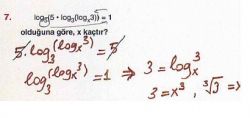 7. log₅(5 · log₃(logₓ3)) = 1
olduğuna göre, x kaçtır?
5·log₃(logₓ3) = 5
log₃(logₓ3) = 1 ⇒ 3 = logₓ3
3 = x³, ∛3 ⇒